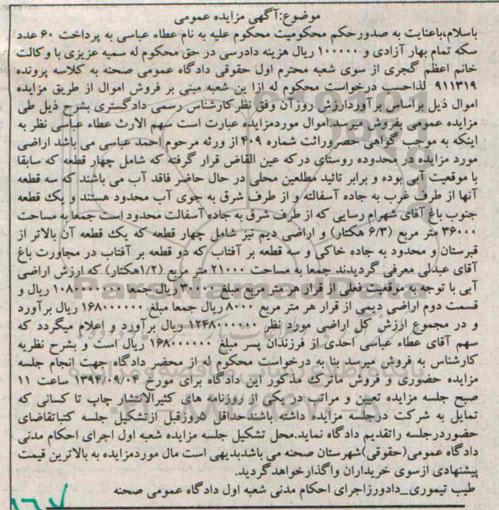 موضوع:آگهی مزایده عمومی
باسلام،باعنایت به صدورحکم محکومیت محکوم علیه به نام عطاء عباسی به پرداخت ۶۰ عدد
سکه تمام بهار آزادی و ۱۰۰۰۰۰ ریال هزینه دادرسی در حق محکوم له سمیه عزیزی با وکالت
خانم اعظم گجری از سوی شعبه محترم اول حقوقی دادگاه عمومی صحنه به کلاسه پرونده
۹۱۱۳۱۹ لذاحسب درخواست محکوم له ازا ین شعبه مبنی بر فروش اموال از طریق مزایده
اموال ذیل براساس برآوردارزش روزآن وفق نظرکارشناس رسمی دادگستری بشرح ذیل طی
مزایده عمومی بفروش میرسد.اموال موردمزایده عبارت است سهم الارث عطاء عباسی نظر به
اینکه به موجب گواهی حصروراثت شماره ۴۰۹ از ورثه مرحوم احمد عباسی می باشد اراضی
مورد مزایده در محدوده روستای درکه عین القاض قرار گرفته که شامل چهار قطعه که سابقا
با موقعیت آبی بوده و برابر تائید مطلعین محلی در حال حاضر فاقد آب می باشند که سه قطعه
آنها از طرف غرب به جاده آسفالته و از طرف شرق به جوی آب محدود هستند و یک قطعه
جنوب باغ آقای شهرام رسایی که از طرف شرق به جاده آسفالت محدود است جمعا به مساحت
۳۶۰۰۰ متر مربع (۶/۳ هکتار) و اراضی دیم نیز شامل چهار قطعه که یک قطعه آن بالاتر از
قبرستان و محدود به جاده خاکی و سه قطعه بر آفتاب که دو قطعه بر آفتاب در مجاورت باغ
آقای عبدلی معرفی گردیدند جمعا به مساحت ۲۱۰۰۰ متر مربع (۱/۲هکتار) که ارزش اراضی
آبی با توجه به موقعیت فعلی از قرار هر متر مربع مبلغ ۳۰۰۰۰ ریال جمعا ۱۰۸۰۰۰۰۰۰۰ ریال و
قسمت دوم اراضی دیمی از قرار هر متر مربع ۸۰۰۰ ریال جمعا مبلغ ۱۶۸۰۰۰۰۰۰ ریال برآورد
و در مجموع ارزش کل اراضی مورد نظر ۱۲۴۸۰۰۰۰۰۰ ریال برآورد و اعلام میگردد که
سهم آقای عطاء عباسی احدی از فرزندان پسر مبلغ ۱۶۸۰۰۰۰۰۰ ریال است و بشرح نظریه
کارشناس به فروش میرسد بنا به درخواست محکوم له از محضر دادگاه جهت انجام جلسه
مزایده حضوری و فروش ماترک مذکور این دادگاه برای مورخ ۱۳۹۴/۰۹/۰۴ ساعت ۱۱
صبح جلسه مزایده تعیین و مراتب در یکی از روزنامه های کثیرالانتشار چاپ تا کسانی که
تمایل به شرکت در جلسه مزایده داشته باشند حداقل ۵روزقبل ازتشکیل جلسه کتباتقاضای
حضوردرجلسه راتقدیم دادگاه نماید.محل تشکیل جلسه مزایده شعبه اول اجرای احکام مدنی
دادگاه عمومی(حقوقی)شهرستان صحنه می باشدبدیهی است مال موردمزایده به بالاترین قیمت
پیشنهادی ازسوی خریداران واگذارخواهدگردید.
طیب تیموری_دادورزاجرای احکام مدنی شعبه اول دادگاه عمومی صحنه